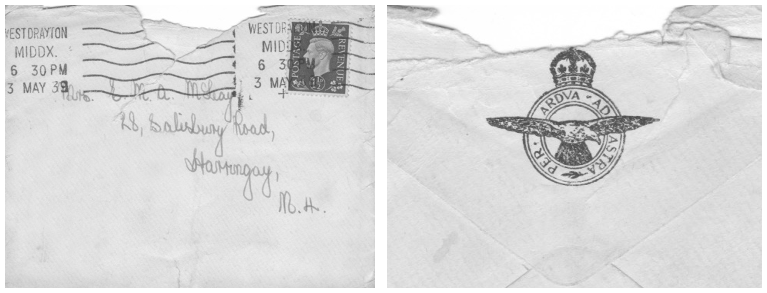 WEST DRAYTON
MIDDX.
6 30 PM
3 MAY 39
WEST D
MID
6 30 PM
3 MAY 39
POSTAGE REVENUE
Mrs. E. M. A.
28, Salisbury Road,
Harringay,
N. 4.
PER · ARDVA · AD ASTRA